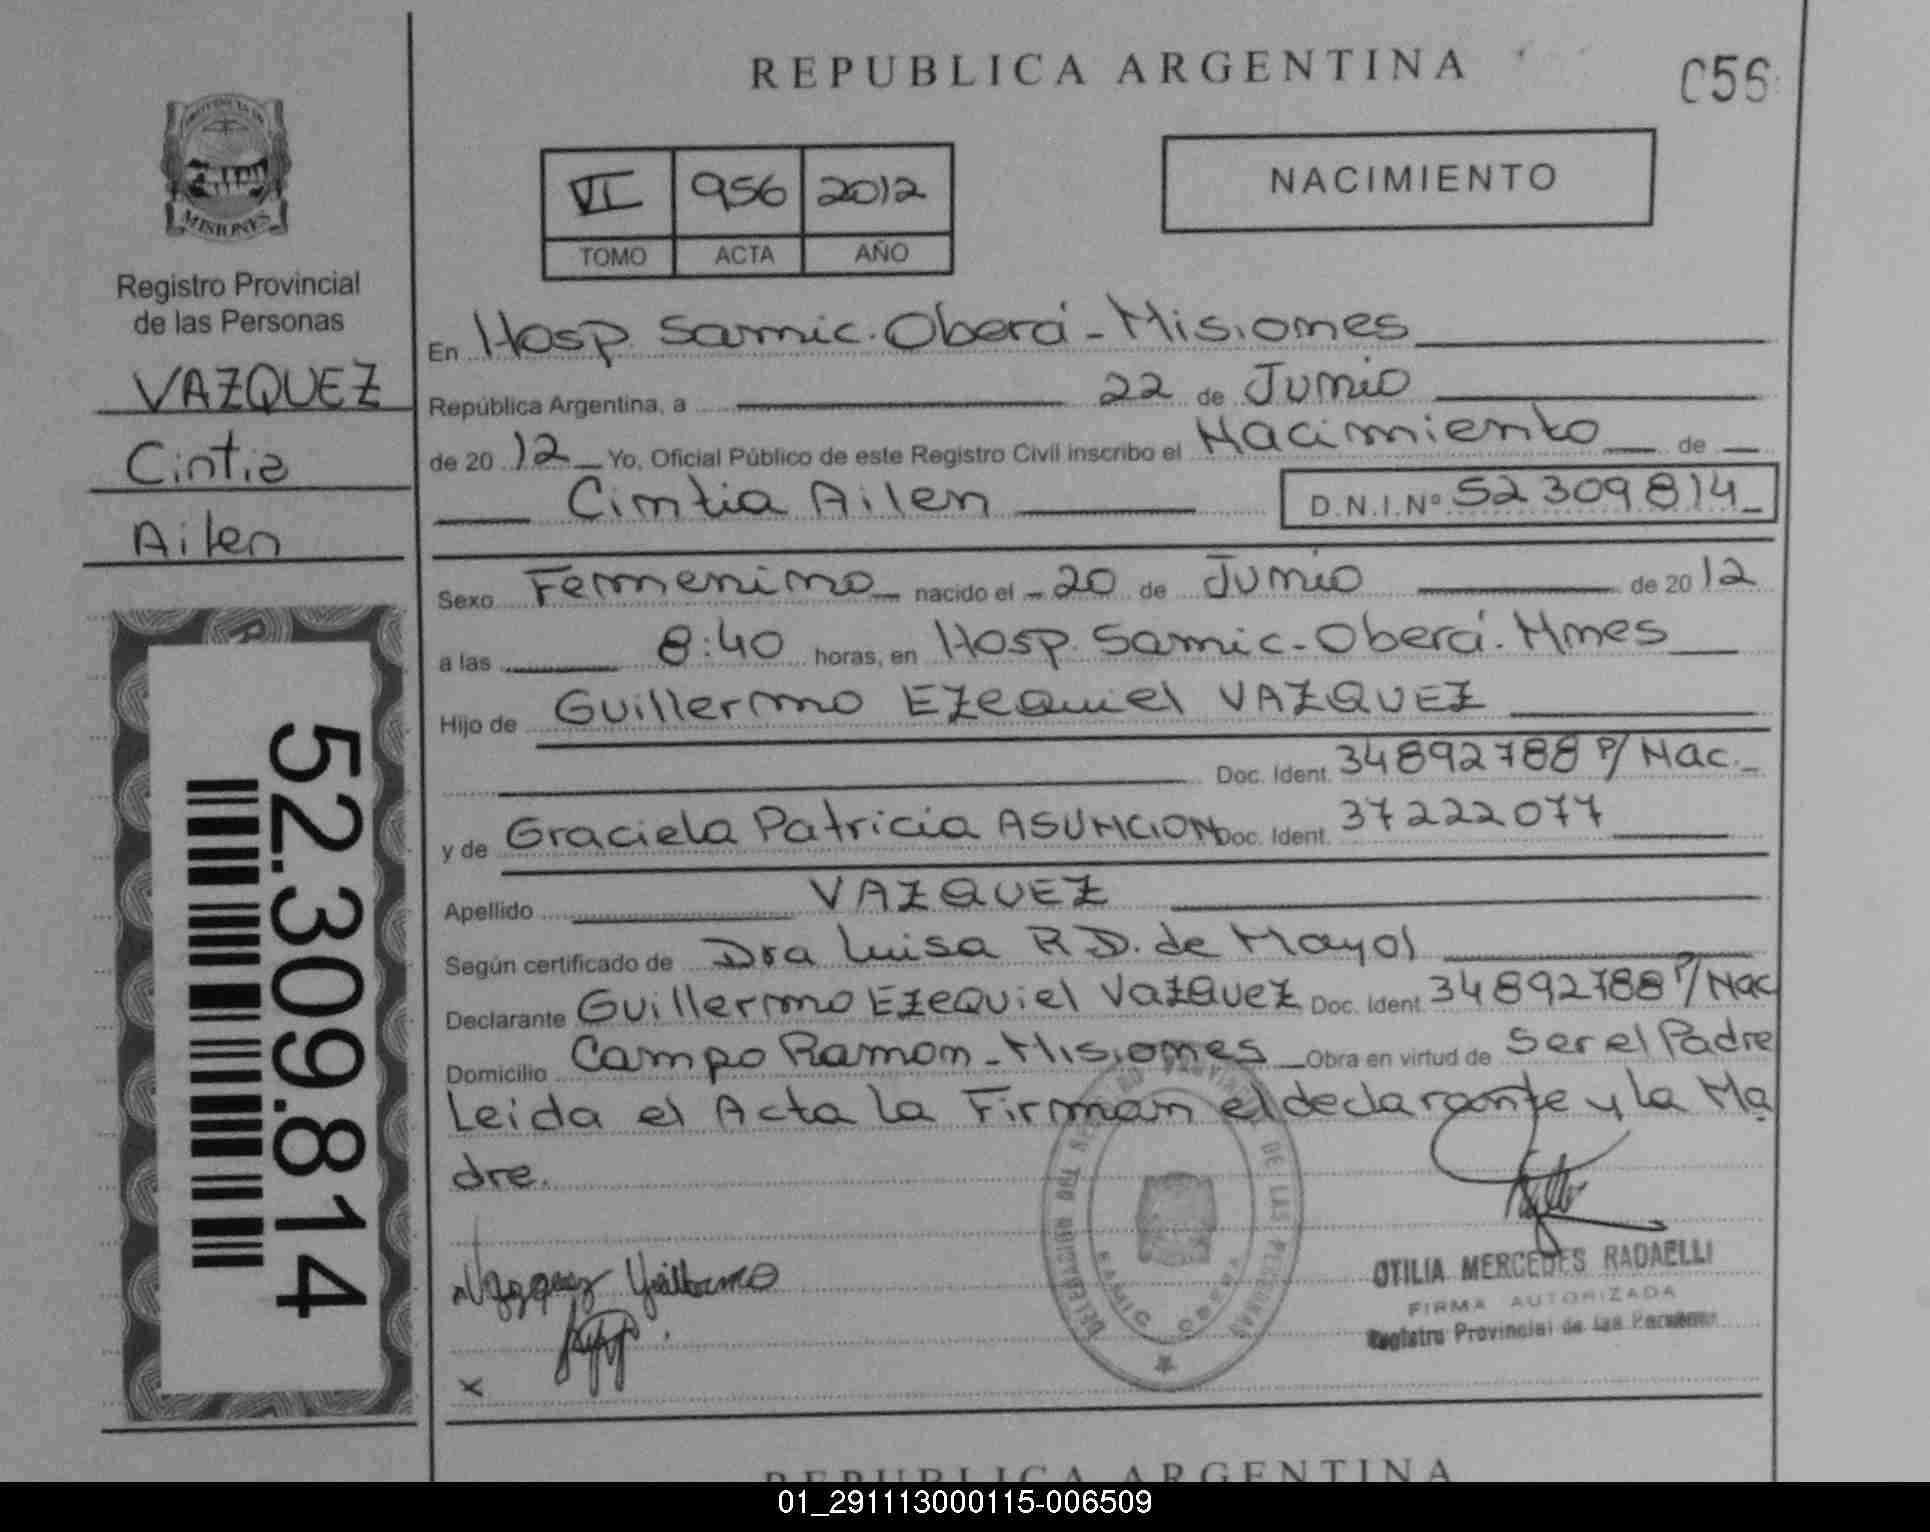 REPUBLICA ARGENTINA
056
PROVINCIA DE
MISIONES
Registro Provincial
de las Personas
VAZQUEZ
Cintia
Ailen
52.309.814
VI 956 2012
TOMO ACTA AÑO
NACIMIENTO
En Hosp. Samic. Oberá - Misiones
República Argentina, a 22 de Junio
de 2012 Yo, Oficial Público de este Registro Civil inscribo el Nacimiento de
Cintia Ailen D.N.I.Nº 52309814
Sexo Femenino nacido el 20 de Junio de 2012
a las 8:40 horas, en Hosp. Samic - Oberá. Mnes
Hijo de Guillermo EZequiel VAZQUEZ
Doc. Ident. 34892788 P/ Nac.
y de Graciela Patricia ASUNCION Doc. Ident. 37222077
Apellido VAZQUEZ
Según certificado de Dra Luisa R D. de Mayol
Declarante Guillermo EZeQuiel VaZQueZ Doc. Ident. 34892788 P/ Nac
Domicilio Campo Ramon - Misiones Obra en virtud de Ser el Padre
Leida el Acta la Firman el declarante y la Ma
dre.
Vazquez Guillermo
x
DELEGACION REGISTRO PROVINCIAL DE LAS PERSONAS
SAMIC OBERA
OTILIA MERCEDES RADAELLI
FIRMA AUTORIZADA
Registro Provincial de las Personas
REPUBLICA ARGENTINA
01_291113000115-006509